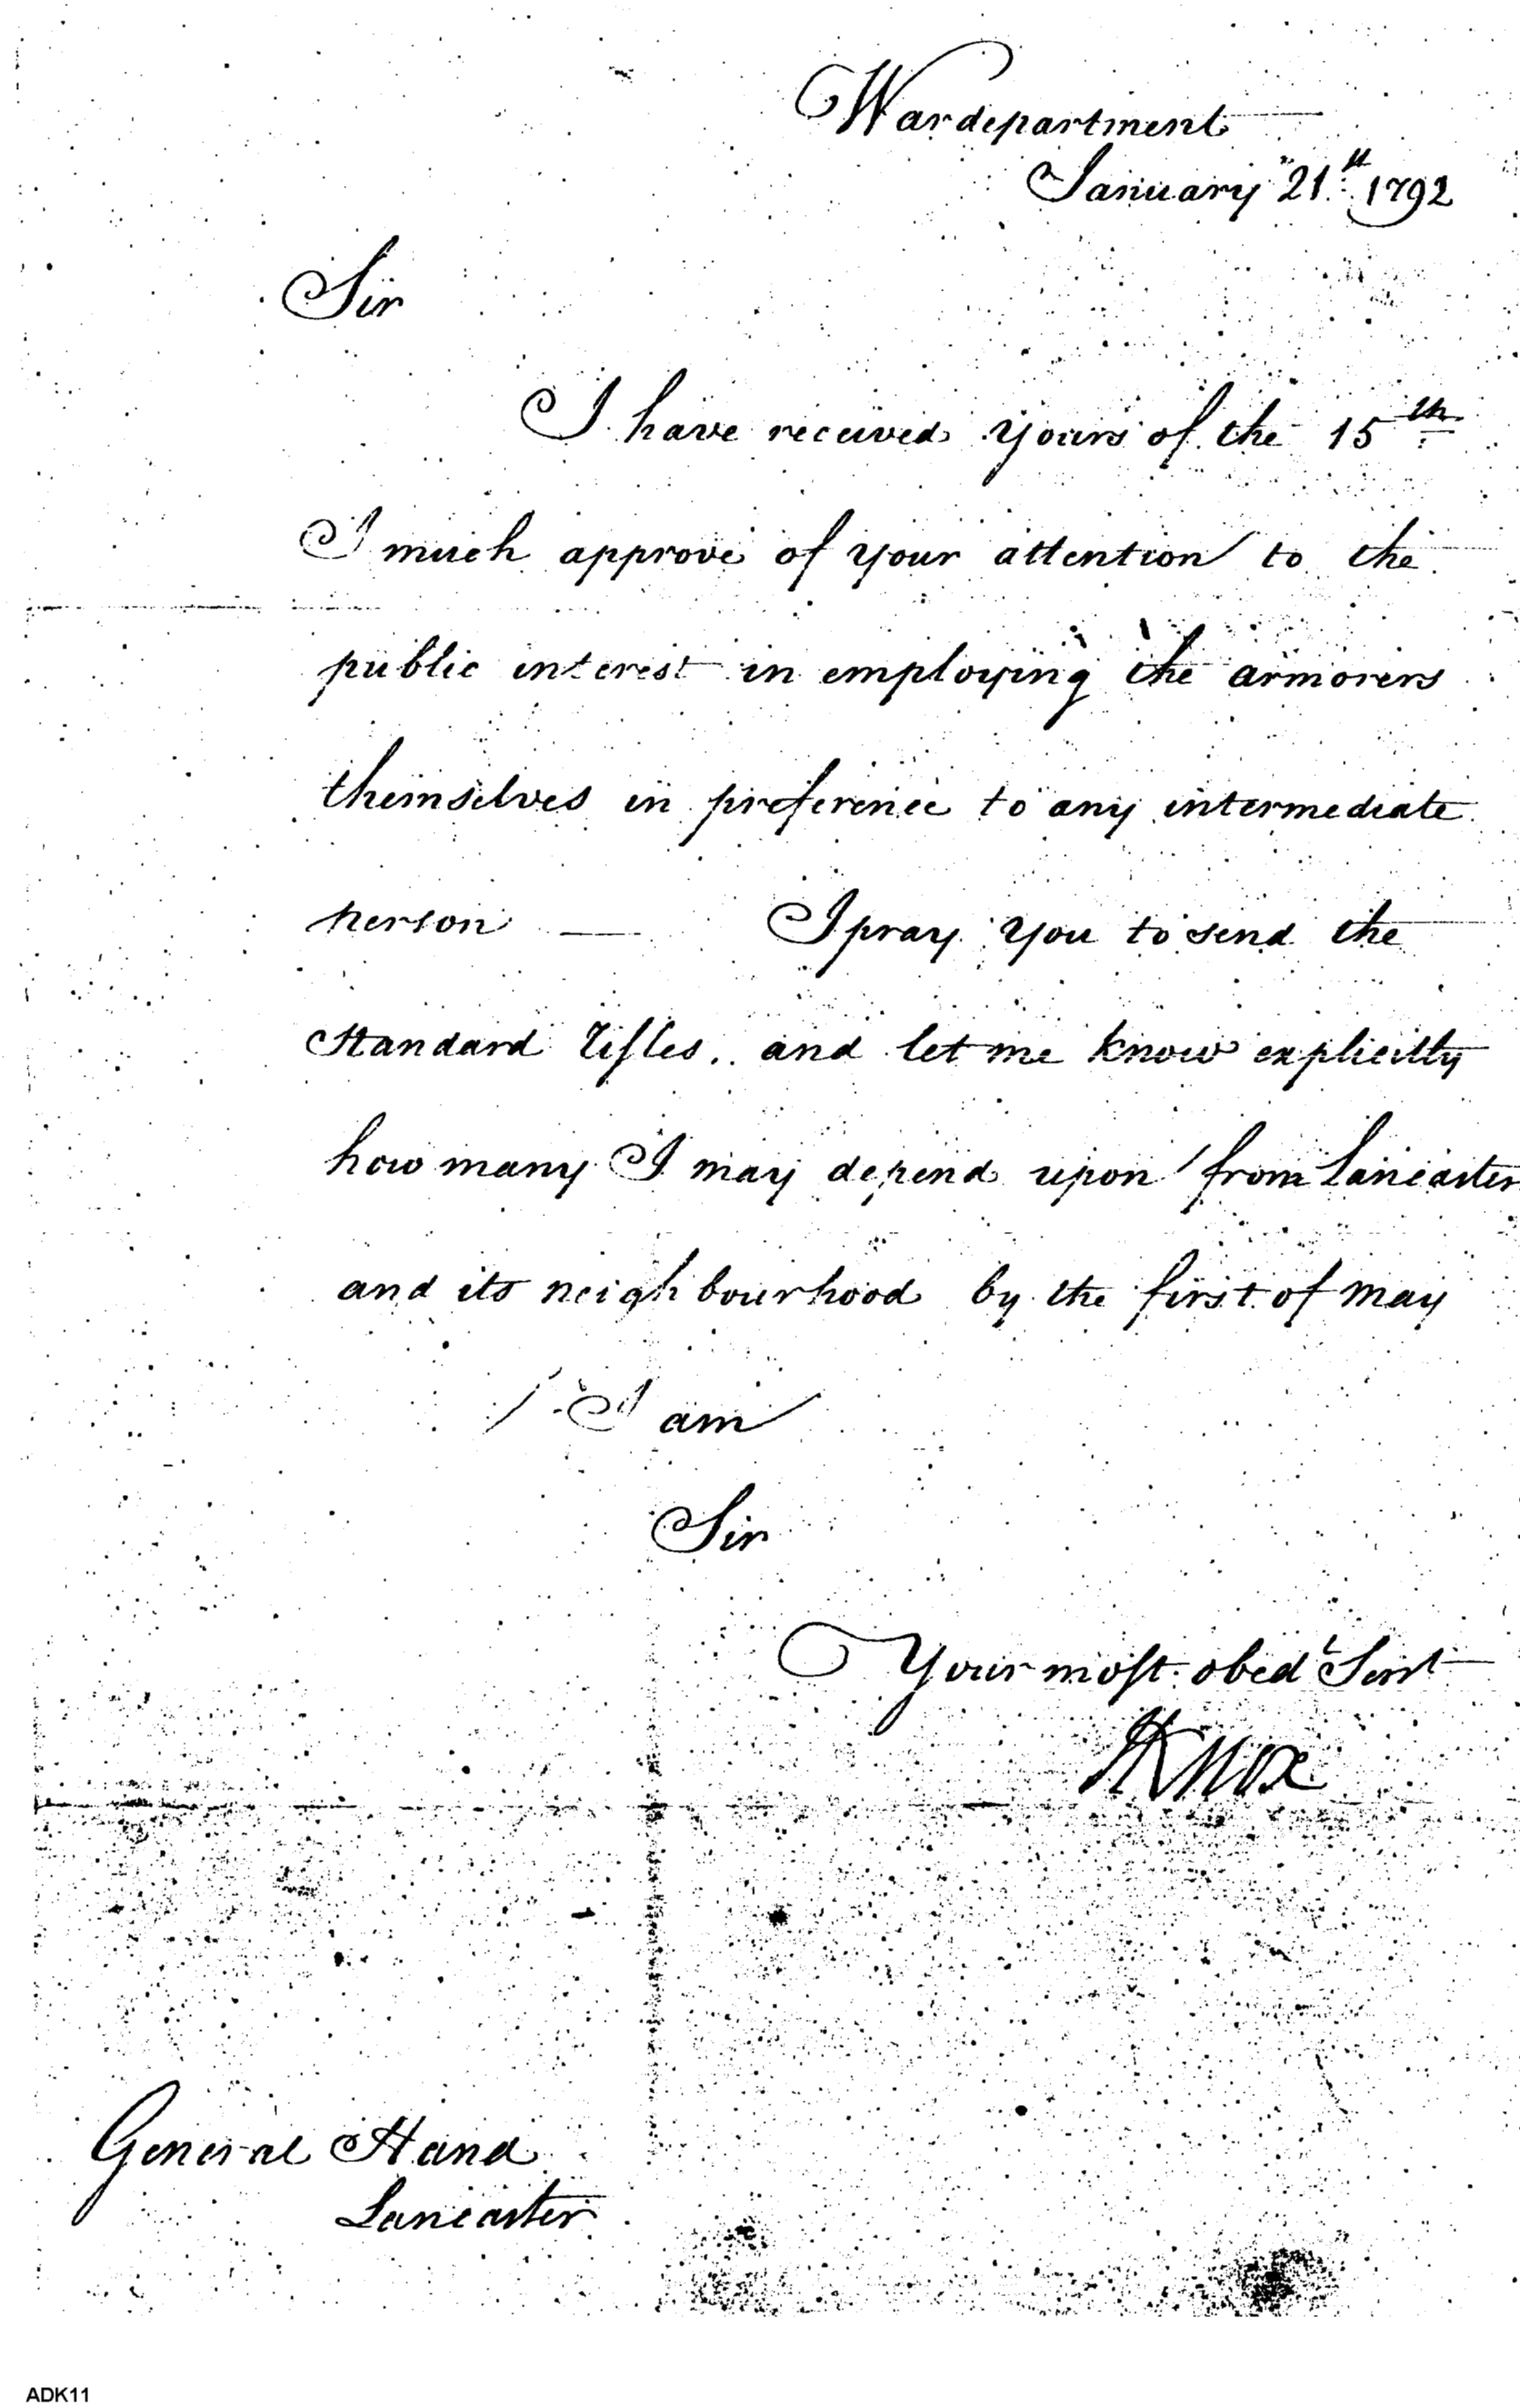 War department
January 21st 1792
Sir
I have received yours of the 15th
I much approve of your attention to the
public interest in employing the armorers
themselves in preference to any intermediate
person — I pray you to send the
Standard rifles. and let me know explicitly
how many I may depend upon from Lancaster
and its neighbourhood by the first of may
I am
Sir
Your most obedt Servt
HKnox
General Hand
Lancaster
ADK11